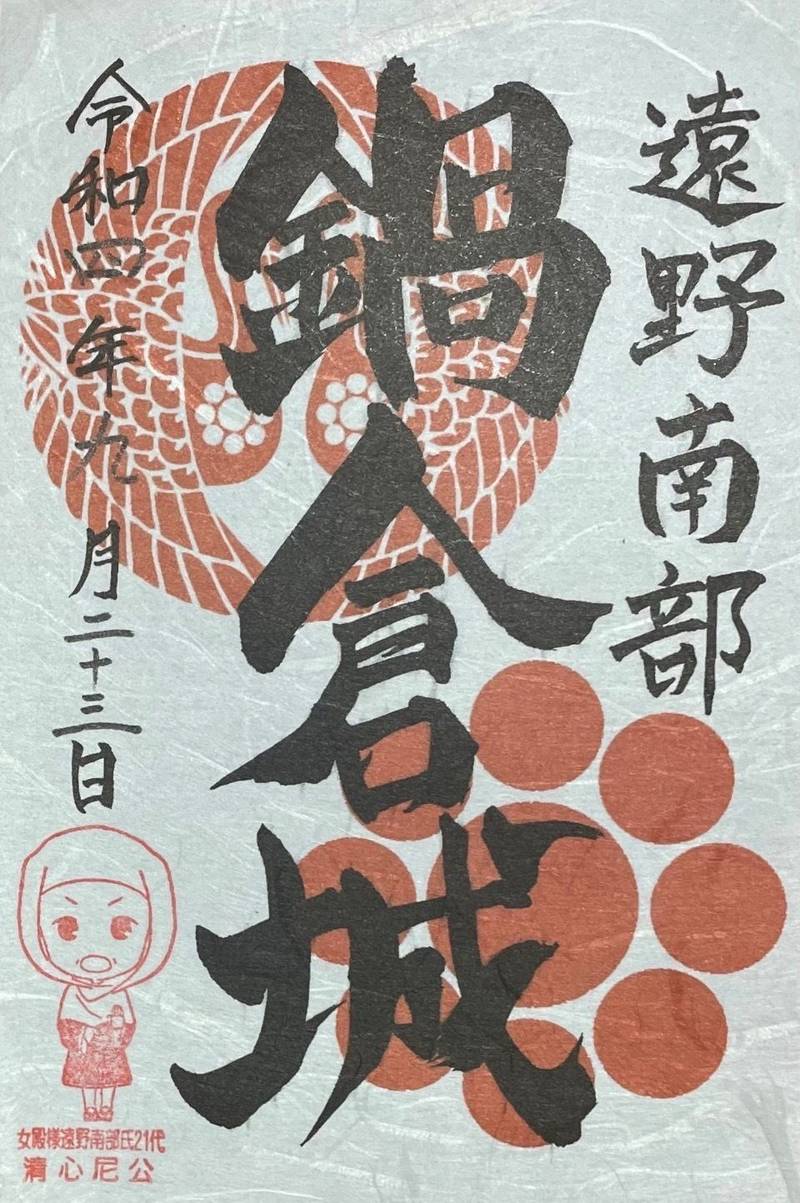 遠野南部
鍋倉城
令和四年九月二十三日
女殿様遠野南部氏21代
清心尼公